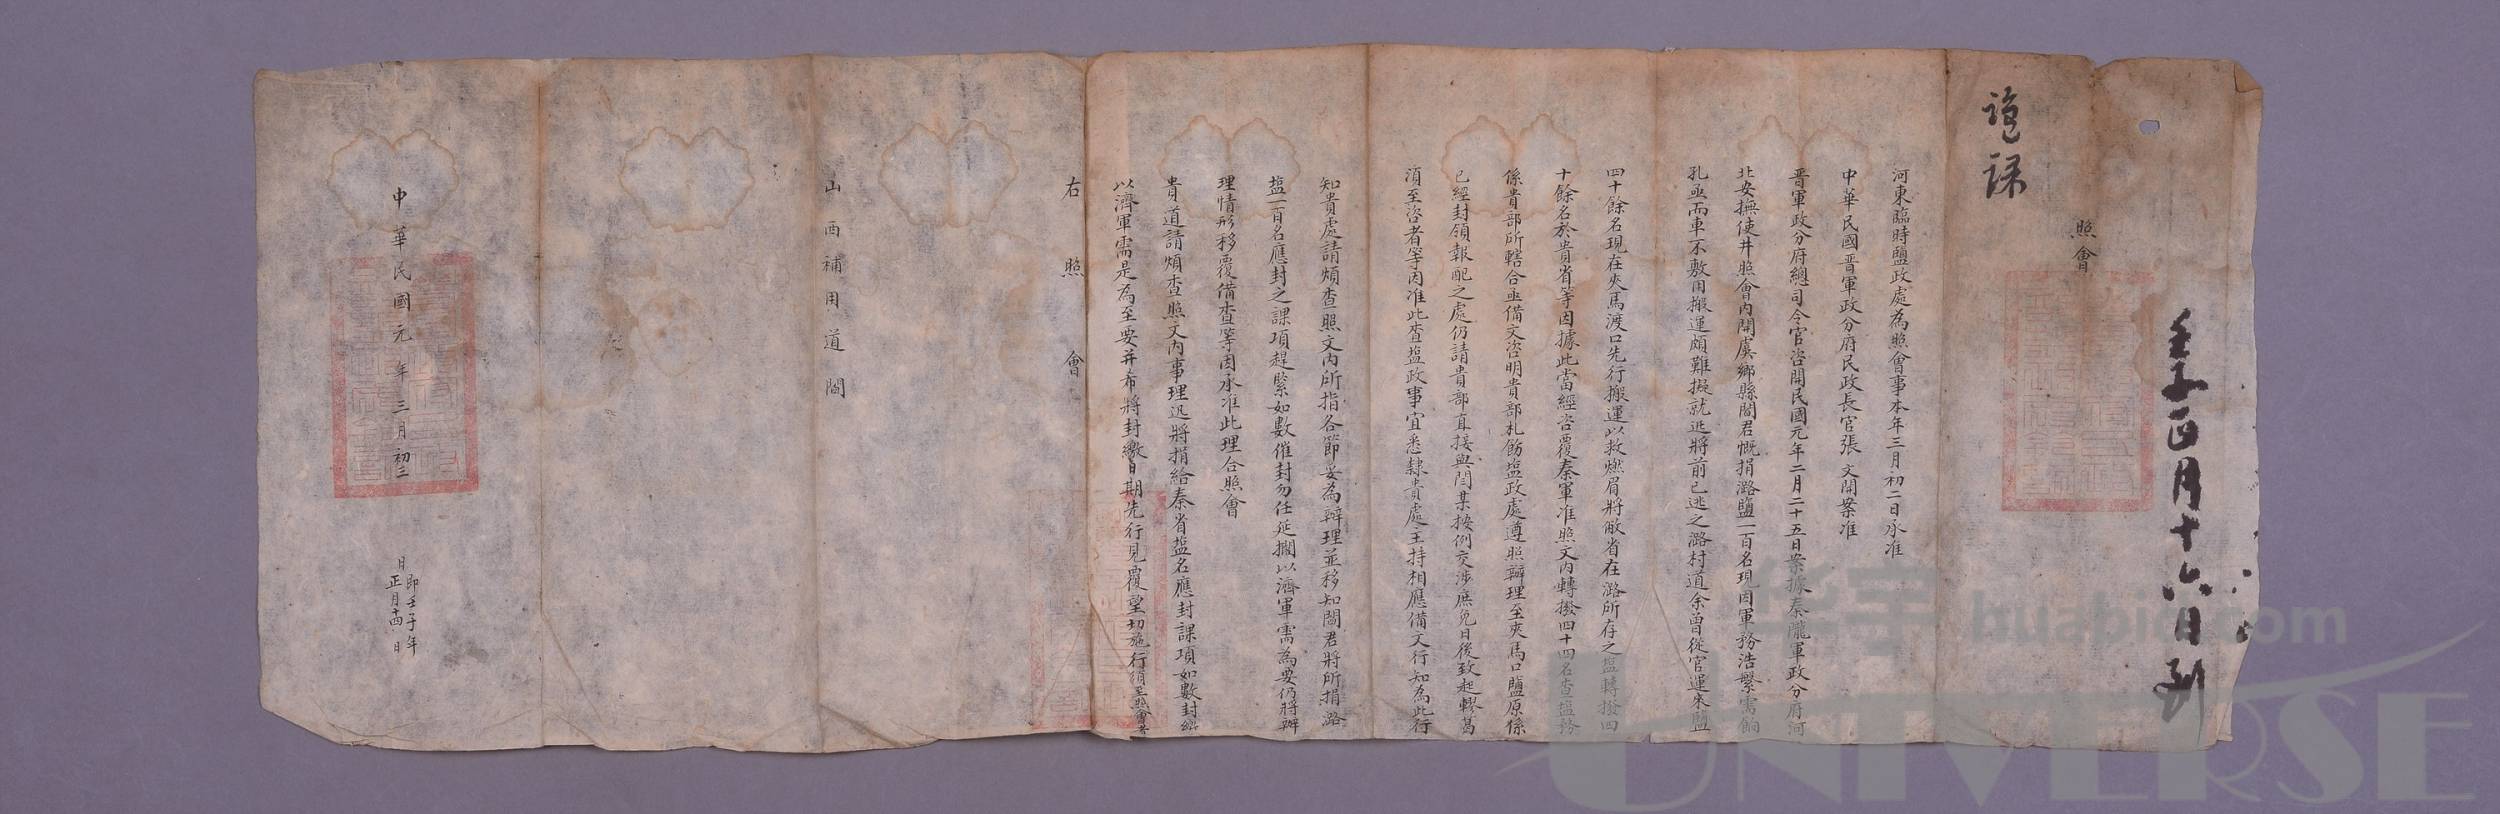 壬子正月十六日到
照會
鹽課
河東臨時鹽政處為照會事本年三月初二日承准
中華民國晋軍政分府民政長官張 文開案准
晋軍政分府總司令官咨開民國元年二月二十五日案據秦隴軍政分府河
北安撫使井照會內開虞鄉縣閻君慨捐潞鹽一百名現因軍務浩繁需餉
孔亟而車不敷用搬運頗難擬就近將前已逃之潞村道余曾從官運來鹽
四十餘名現在夾馬渡口先行搬運以救燃眉將敝省在潞所存之塩轉撥四
十餘名於貴省等因據此當經咨覆秦軍准照文內轉撥四十四名查塩務
係貴部所轄合亟備文咨明貴部札飭塩政處遵照辦理至夾馬口鹽原係
已經封領報配之處仍請貴部直接與閻某按例交涉庶免日後致起轇葛
湏至咨者等因准此查塩政事宜悉隸貴處主持相應備文行知為此行
知貴處請煩查照文內所指各節妥為辦理並移知閻君將所捐潞
塩一百名應封之課項趕緊如數催封勿任延擱以濟軍需為要仍將辦
理情形移覆備查等因承准此理合照會
貴道請煩查照文內事理迅將捐給秦省塩名應封課項如數封繳
以濟軍需是為至要并希將封繳日期先行見覆望切施行須至照會者
右照會
山西補用道閻
中華民國元年三月初三日即壬子年正月十四日
华宇
huabid.com
UNIVERSE